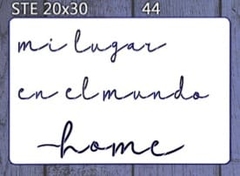 STE 20x30 44
mi lugar
en el mundo
home